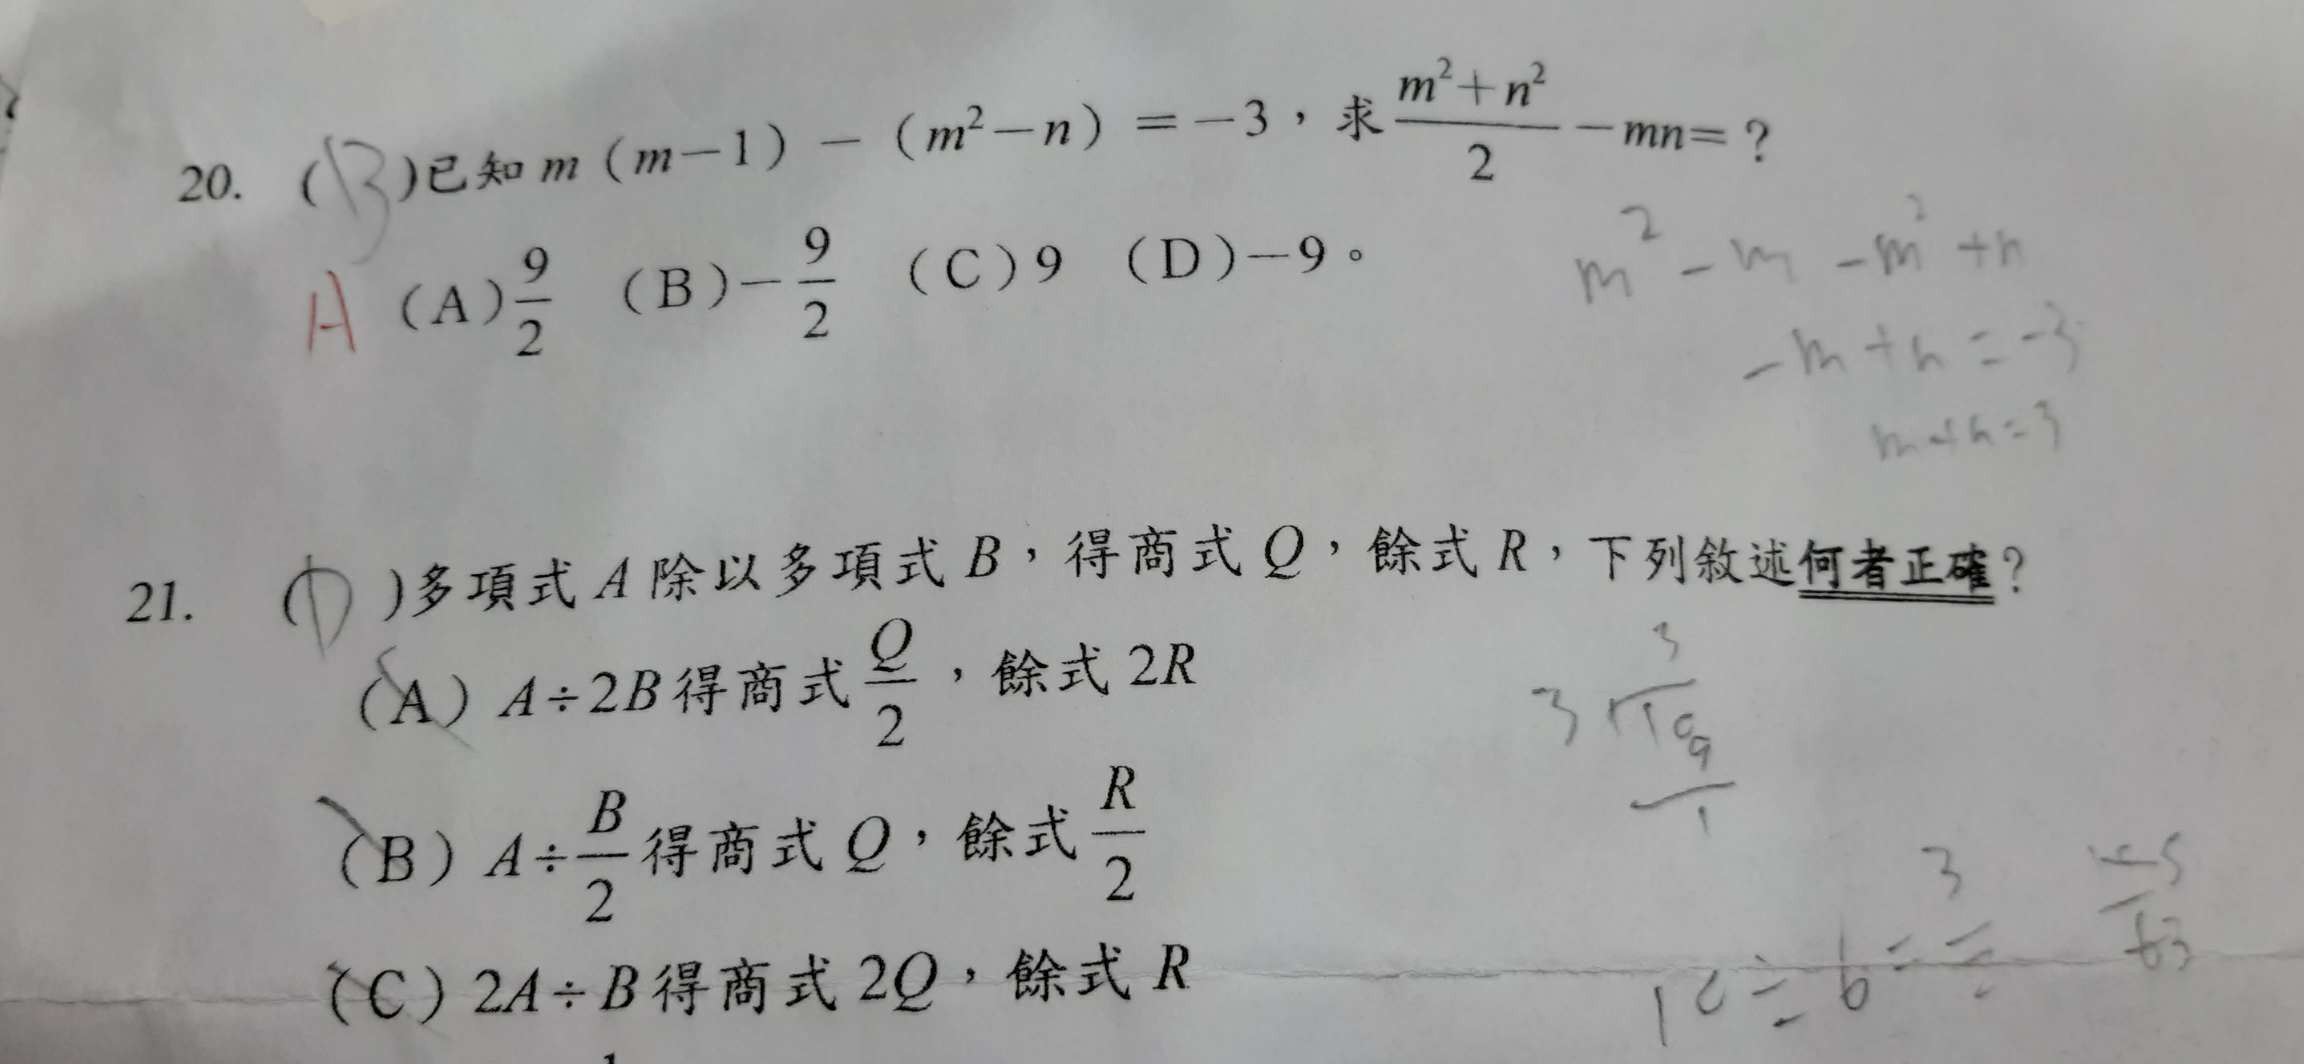 20. (B)已知 m（m－1）－（m²－n）＝－3，求 \frac{m²＋n²}{2}－mn＝？
m² - m - m² + n
A （A）\frac{9}{2} （B）－\frac{9}{2} （C）9 （D）－9。
-m + n = -3
m + n = 3
21. (D)多項式 A 除以多項式 B，得商式 Q，餘式 R，下列敘述何者正確？
（A）A÷2B 得商式 \frac{Q}{2}，餘式 2R
3
3 10
9
1
（B）A÷\frac{B}{2} 得商式 Q，餘式 \frac{R}{2}
3
（C）2A÷B 得商式 2Q，餘式 R